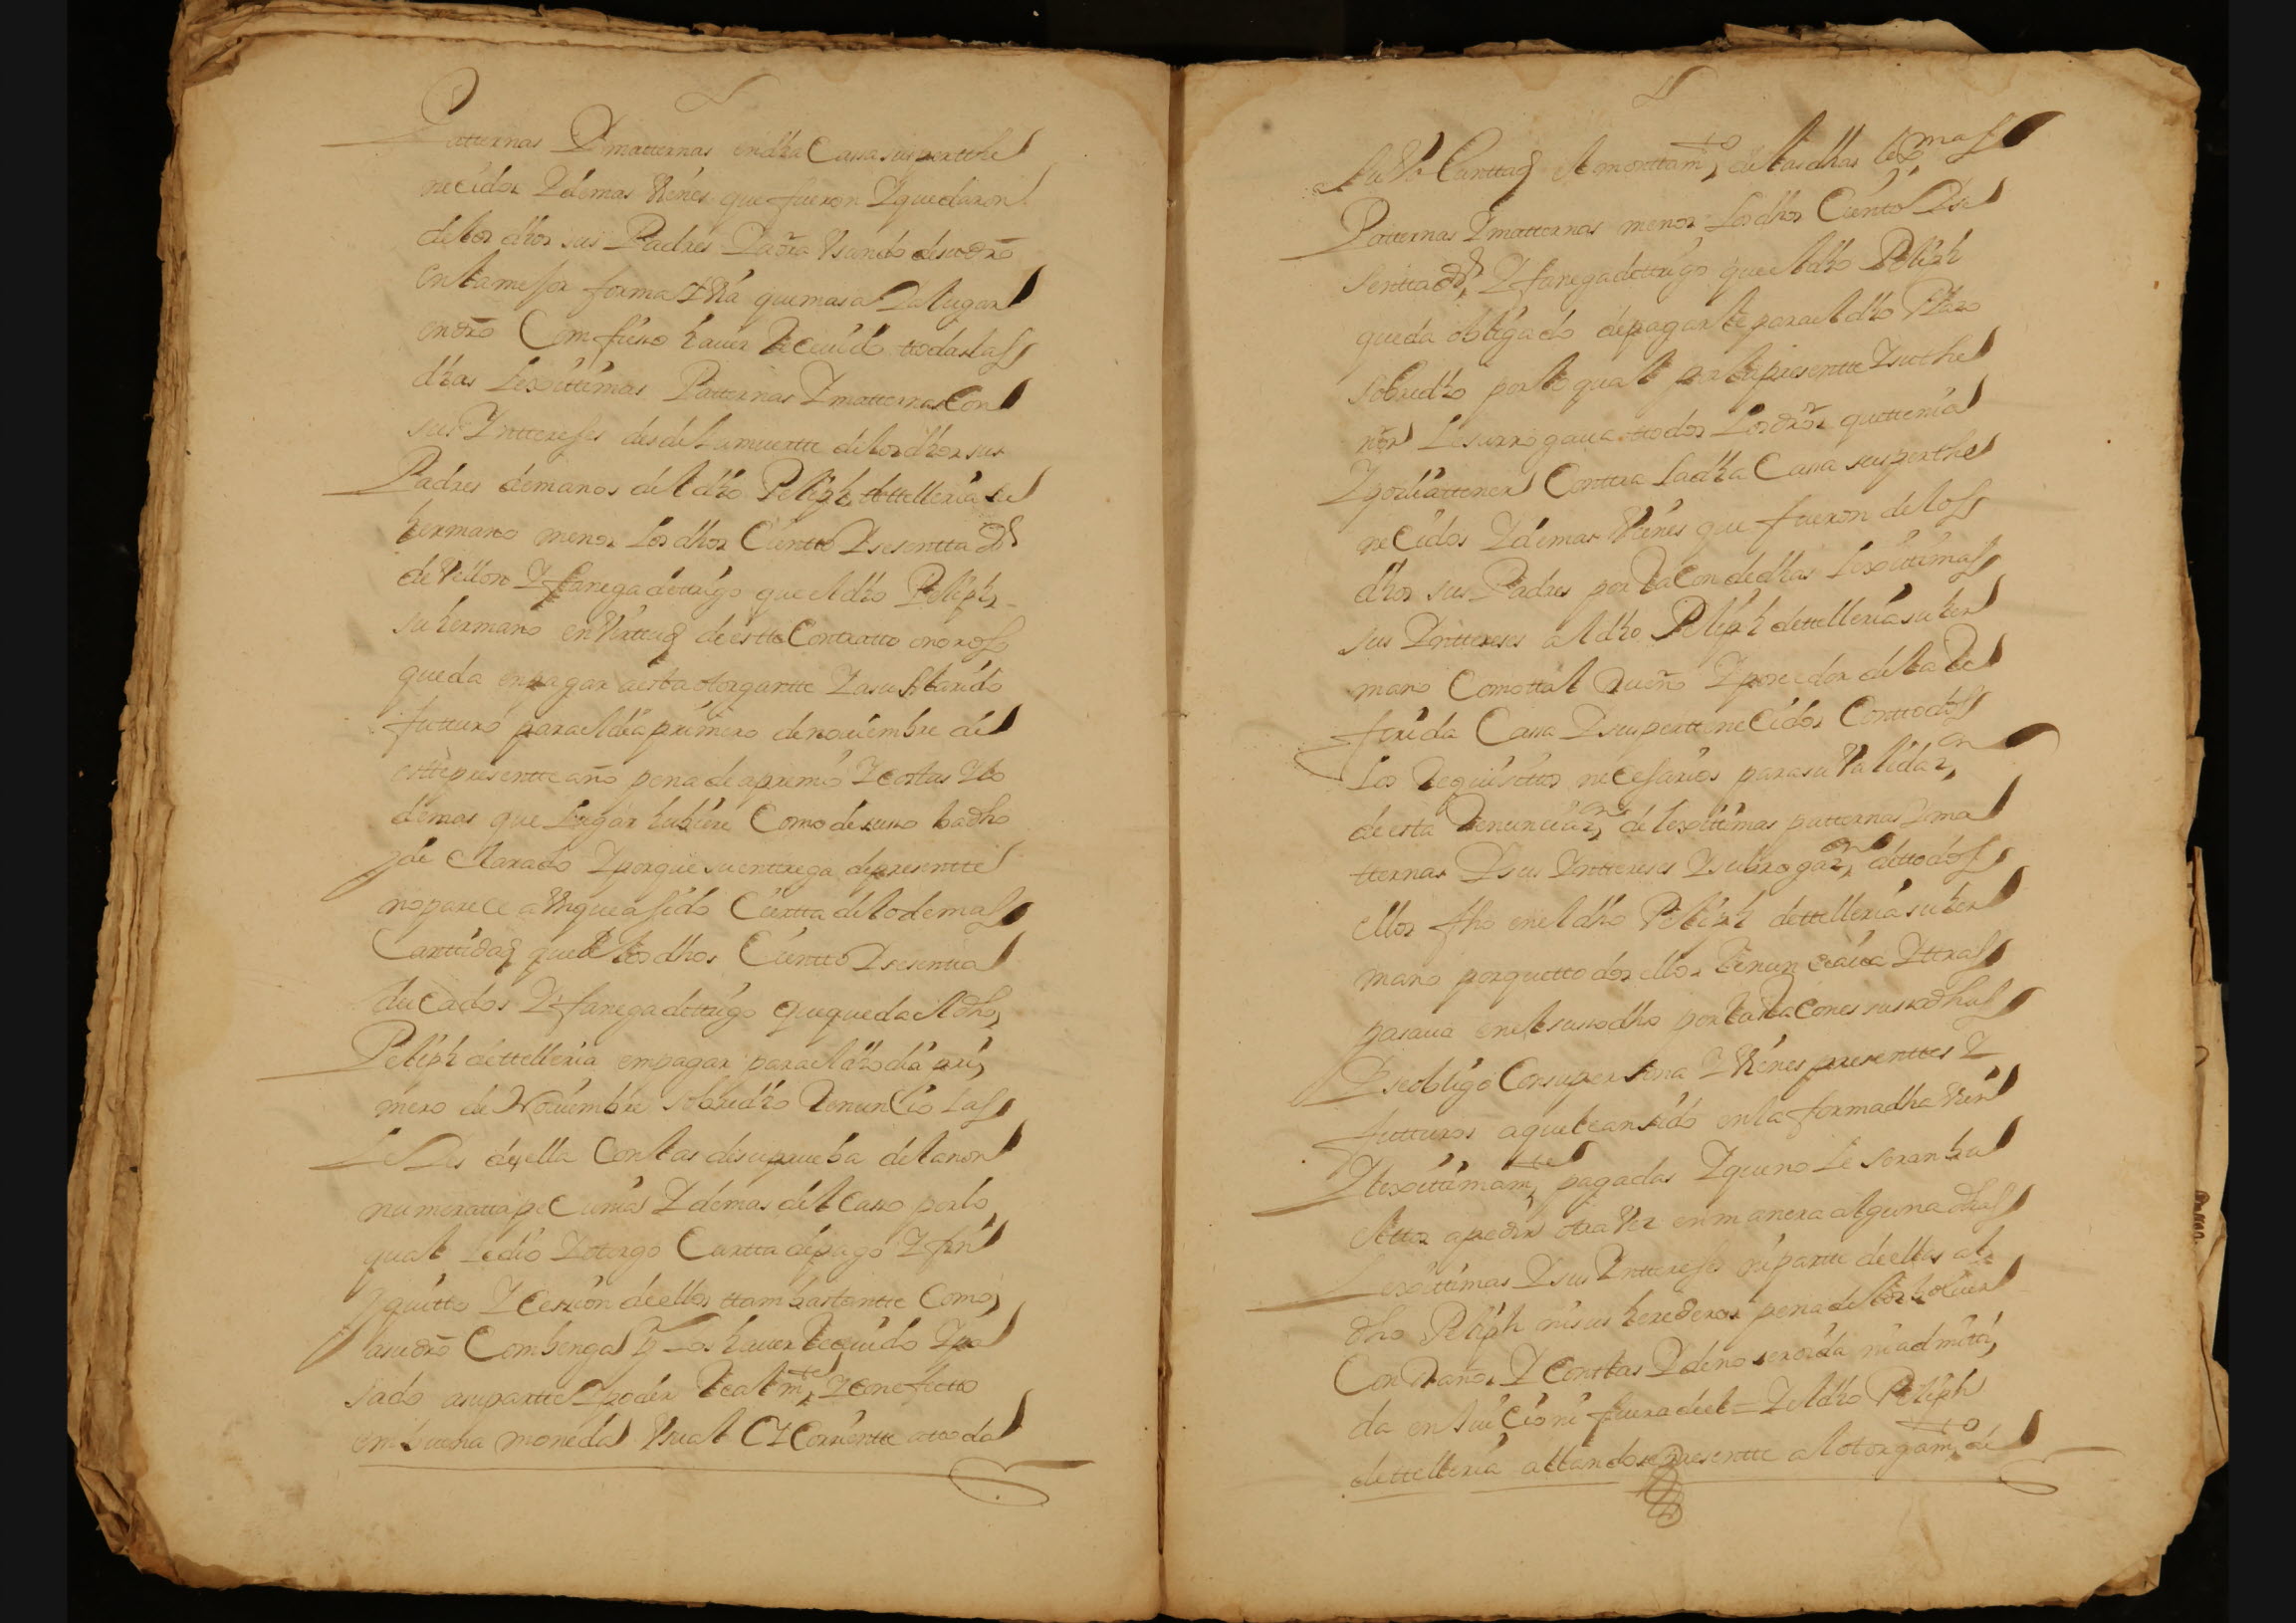 Patternas Y matternas en dha Cassa sus perthe
necidos Y demas Vienes que fueron Y quedaron
de los dhos sus Padres Y aora Vsando de su dro
en la mejor forma Y Via que mas aYa lugar
en dro Comfieso hauer Receuido todas las
dhas Lexittimas Patternas Y matternas Con
sus Yntteresses desde la muertte de los dhos sus
Padres de manos del dho Pheliph de ttelleria su
hermano menos los dhos Ciento Y sesentta ds
de Vellon Y fanega de trigo que el dho Pheliph
su hermano en Virttud de estte Contratto onoroso
queda en pagar a esta otorgantte Y a su Marido
futturo para el dia primero de nouiembre de
estte presentte año pena de apremio Y costas Y lo
demas que lugar hubiere Como de suso ba dho
Y de Clarado Y porque su entrega de presentte
no parece aVnque a sido Cierta de lo demas
Canttidad que los dhos Ciento Y sesentta
ducados Y fanega de trigo que queda el dho
Pheliph de ttelleria en pagar para el dho dia pri
mero de Nouiembre sobredho Renuncio las
LeYes de ella Con las de su prueba de la non
numeratta pecunia Y demas del Caso por lo
qual le dio Y otorgo Cartta de pago Y fin
Y quitto Y Cesion de ellos ttam bastantte Como
a su dro Combenga Y los hauer Receuido Y pa
sado a su partte Y poder Realmte Y con efectto
en buena moneda Vsual Y Corrientte a ttoda
su Volunttad el monttamto de las dhas lexmas
Patternas Y matternas menos los dhos Ciento Y se
sentta ds Y fanega de trigo que el dho Pheliph
queda obligado de pagarle para el dho Plazo
sobredho por lo qual por la presentte Y su the
nor le surrogaua ttodos los dros que ttenia
Y podia ttener Conttra la dha Cassa sus perthe
necidos Y demas Vienes que fueron de los
dhos sus Padres por Racon de dhas lexittimas
sus Yntteresses al dho Pheliph de ttelleria su her
mano Como ttal Dueño Y posedor de la Re
ferida Cassa Y sus perttenecidos Con ttodos
los Requisittos necesarios para su Validazon
de esta Renunciazon de lexittimas patternas Y ma
tternas Y sus Yntteresses Y subrogazon de ttodos
ellos fho en el dho Pheliph de ttelleria su her
mano porque ttodos ellos Renunciaua Y ttras
pasaua en el susodho por las Racones susodhas
Y se obligo Con su persona Y Vienes presenttes Y
futturos a que le an sido en la forma dha Vien
Y lexittimamte pagadas Y que no le seran bu
eltos a pedir otra Vez en manera alguna dhas
Lexittimas Y sus Yntteresses ni partte de ellas al
dho Pheliph ni sus herederos pena de los boluer
Con Daños Y Costtas Y de no ser oida ni admiti
da en Juicio ni fuera de el = Y el dho Pheliph
de ttelleria allandose presentte al otorgamto de